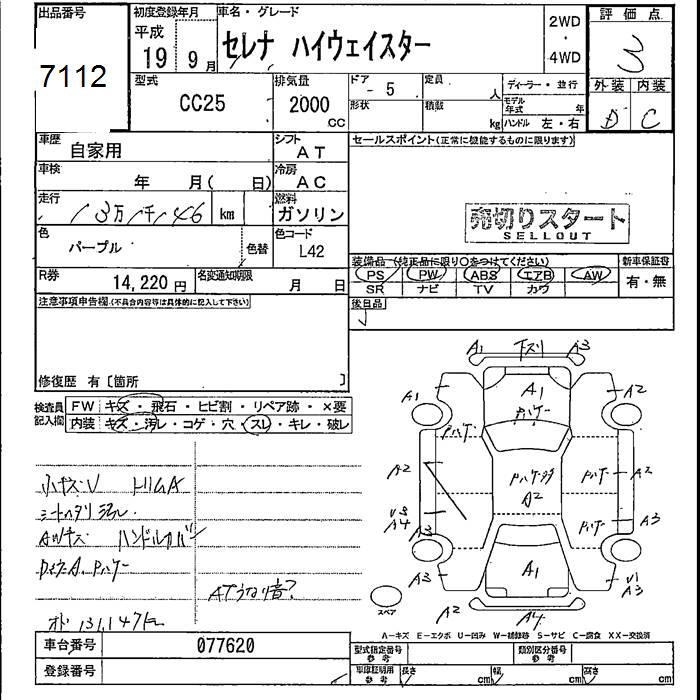 出品番号
7112
初度登録年月
平成
19 9月
車名・グレード
セレナ ハイウェイスター
2WD
・
4WD
評価点
3
外装 内装
D C
型式
CC25
排気量
2000
CC
ドア
- 5
定員
人
形状
積載
kg
ディーラー・並行
モデル年式 年
ハンドル 左・右
車歴
自家用
シフト
AT
車検
年 月( 日)
冷房
AC
走行
13万1千146 km
燃料
ガソリン
色
パープル
色替
色コード
L42
R券
14,220円
名変通知期限
月 日
セールスポイント(正常に機能するものに限ります)
売切りスタート
SELLOUT
装備品 (純正品に限り○をつけてください)
新車保証書
PS PW ABS エアB AW
有・無
SR ナビ TV カワ
後日品
注意事項申告欄.(不具合内容等は具体的に記入して下さい)
修復歴 有〔箇所 〕
検査員記入欄
FW キズ・飛石・ヒビ割・リペア跡・×要
内装 キズ・汚レ・コゲ・穴・スレ・キレ・破レ
小キズ・U トリムA
シートヘタリ汚レ
AWキズ ハンドルカバー
A
ATうなり音?
オド 131,147km
A1 下スリ A3
A1
A1
A2
A2
A2
A2
U3
A4
A3
A3
A3
A1
U1
A3
A2
A4
スペア
A-キズ E-エクボ U-凹み W-補修跡 S-サビ C-腐食 XX-交換済
車台番号
077620
登録番号
型式指定番号
参考
類別区分番号
参考
車庫証明用
参考
長さ cm 幅 cm 高さ cm